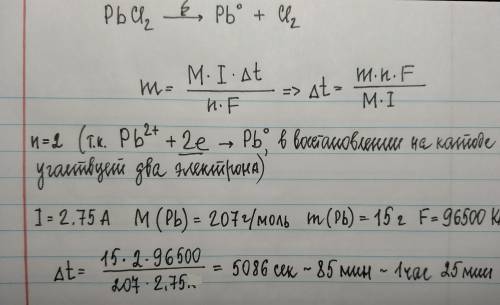 PbCl₂ —ē→ Pb° + Cl₂
m = M·I·Δt / n·F => Δt = m·n·F / M·I
n=2 (т.к. Pb²⁺ + 2e → Pb°, в восстановлении на катоде
участвует два электрона)
I = 2.75 A M(Pb) = 207 г/моль m(Pb) = 15 г F = 96500 Кл
Δt = 15·2·96500 / 207·2,75.. = 5086 сек ~ 85 мин ~ 1 час 25 мин